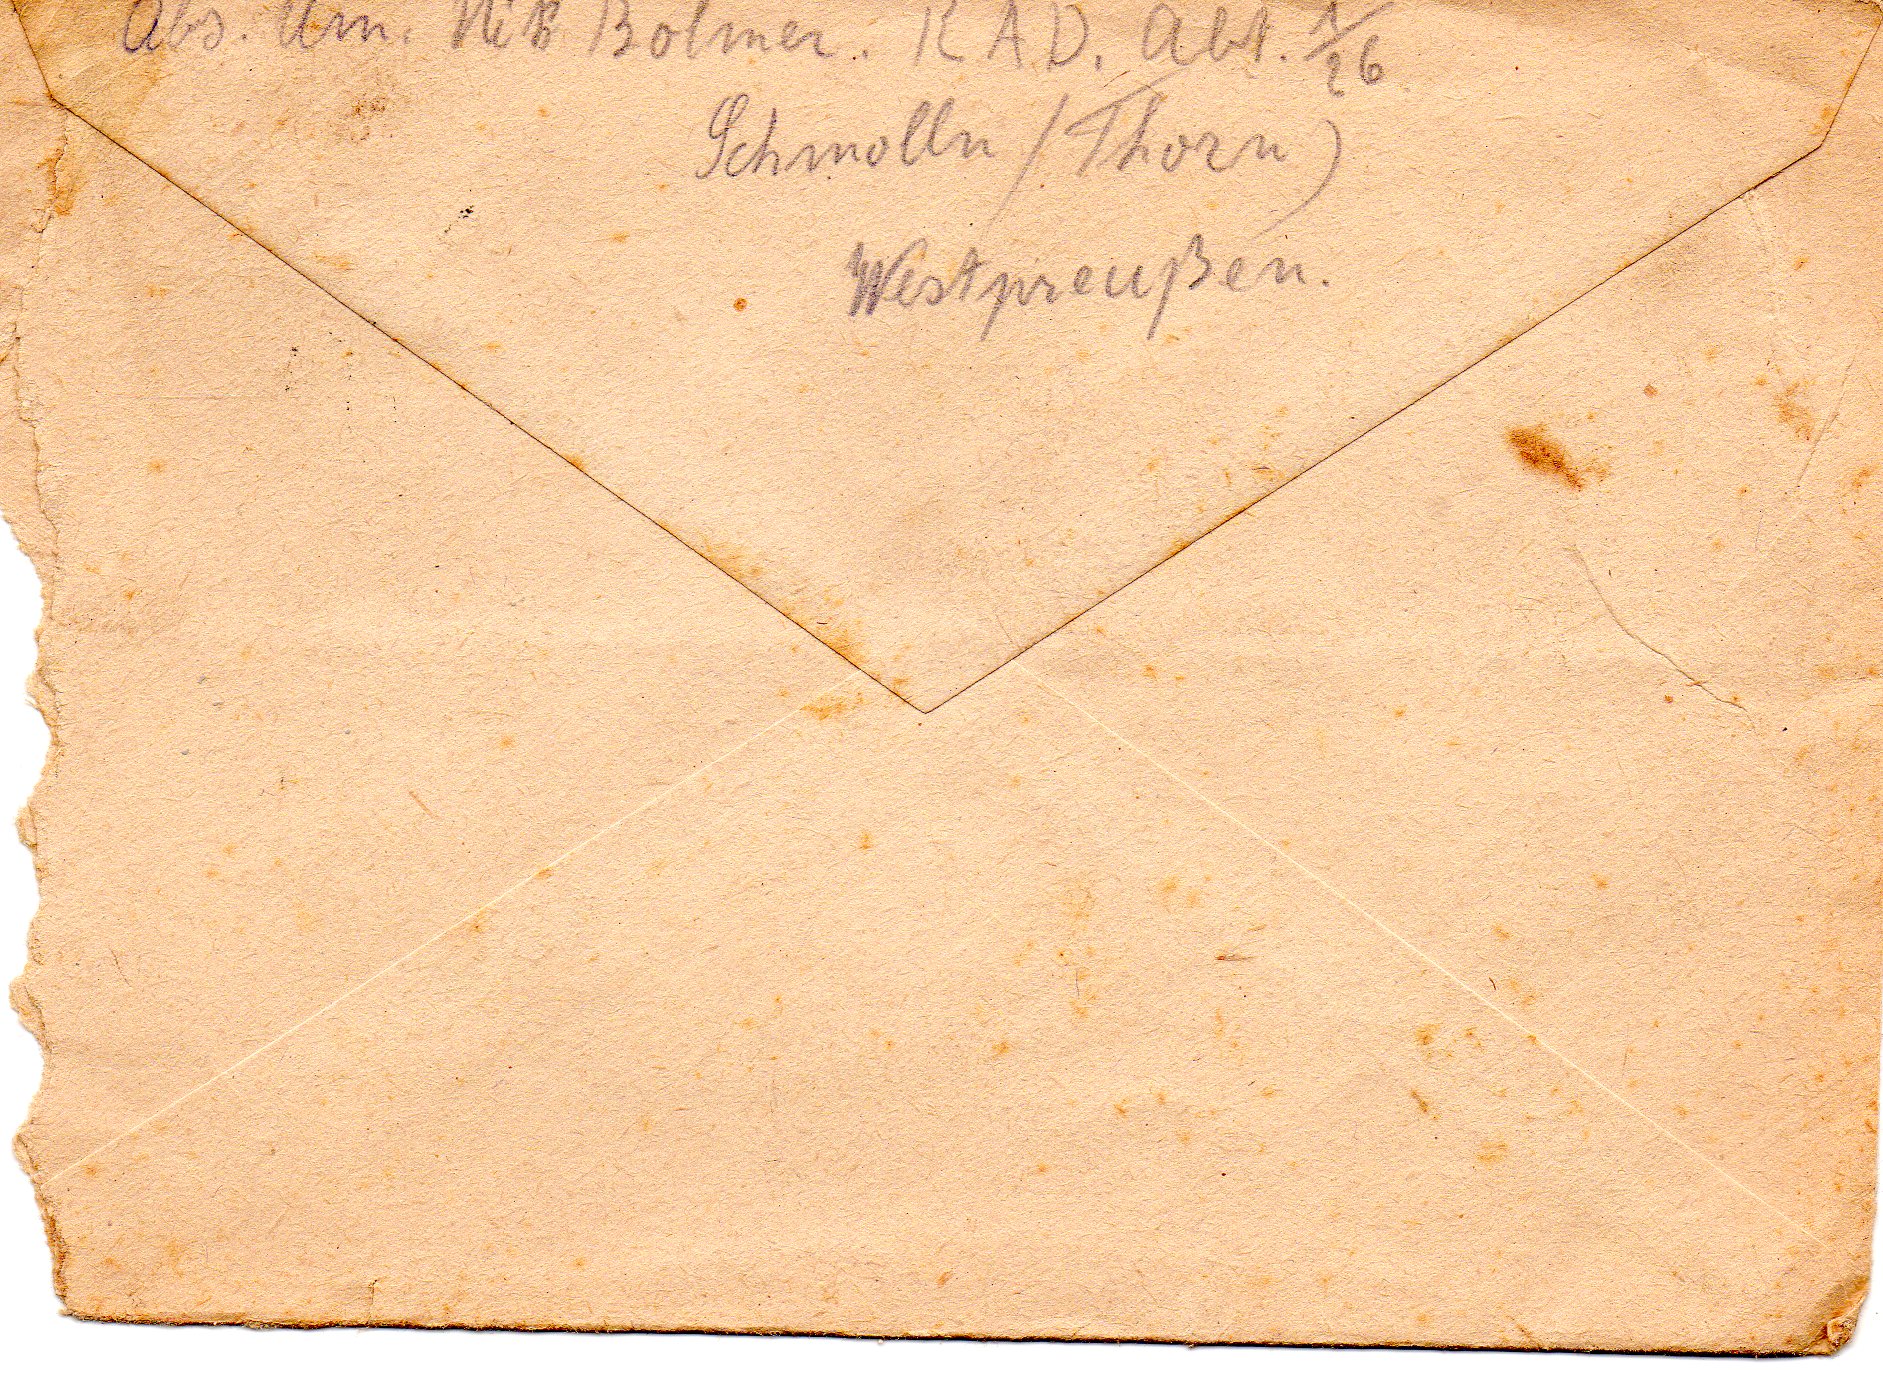 Abs. Am. Nik Bolmer. RAD. Abt. 1/26
Schmolln (Thorn)
Westpreußen.